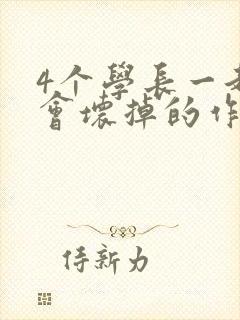 4个學長一
會壞掉的作
侍新力